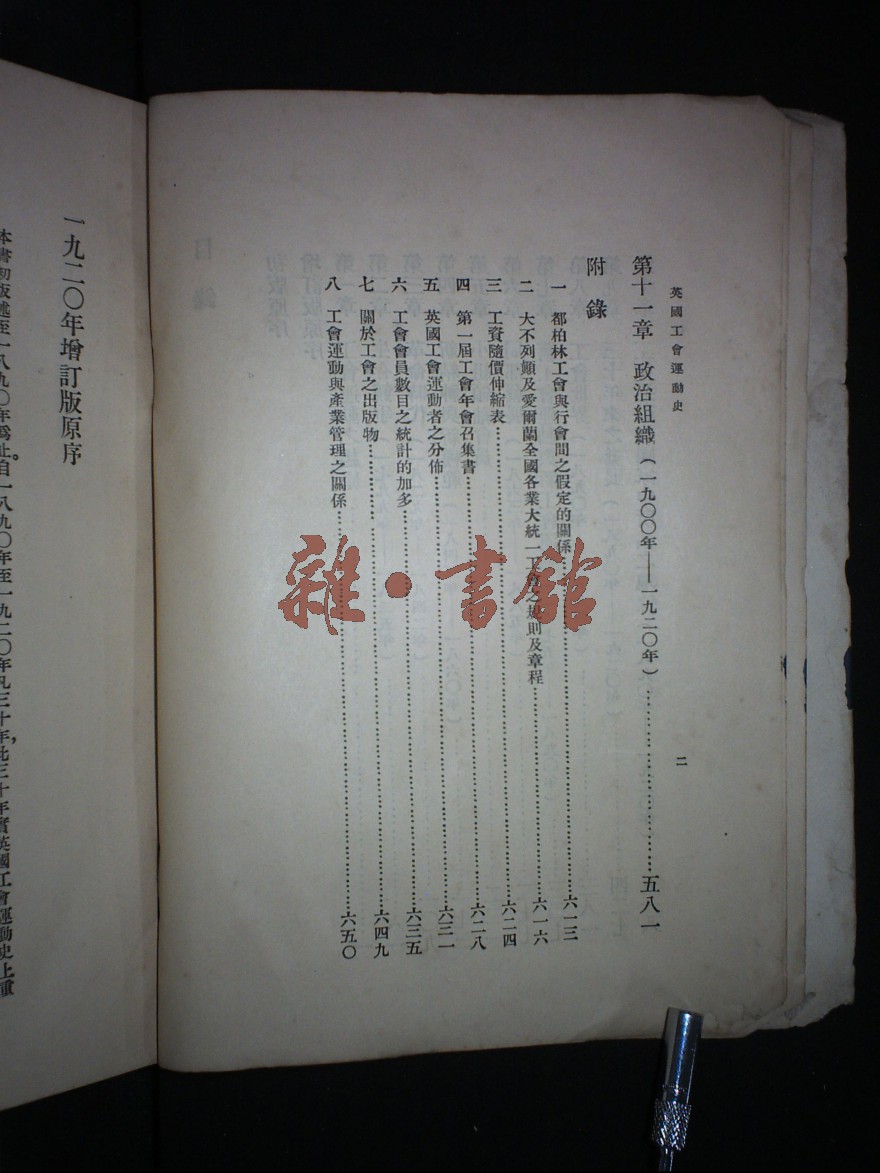 英國工會運動史
二
第十一章 政治組織(一九〇〇年——一九二〇年)……………………五八一
附錄
一 都柏林工會與行會間之假定的關係……………………六一三
二 大不列顛及愛爾蘭全國各業大統一工會之規則及章程……………………六一六
三 工資隨價伸縮表……………………六二四
四 第一屆工會年會召集書……………………六二八
五 英國工會運動者之分佈……………………六三一
六 工會會員數目之統計的加多……………………六三五
七 關於工會之出版物……………………六四九
八 工會運動與產業管理之關係……………………六五〇
雜·書館
一九二〇年增訂版原序
本書初版述至一八九〇年爲止。自一八九〇年至一九二〇年凡三十年,此三十年實英國工會運動史上重